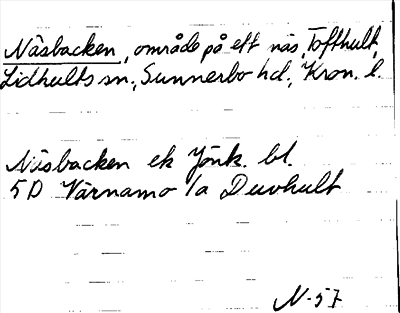 Näsbacken, område på ett näs, Tofthult,
Lidhults sn., Sunnerbo hd., Kron. l.
Näsbacken ek Jönk. bl.
5D Värnamo 1a Duvhult
N-57